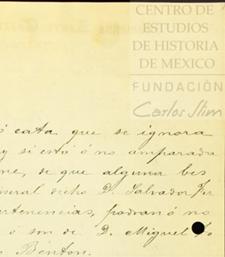 CENTRO DE
ESTUDIOS
DE HISTORIA
DE MEXICO
FUNDACIÓN
Carlos Slim
ó cata que se ignora
y si estó ó no amparada
me, de que alguna bes
neral dicho D. Salvador
ertenencias, podran ó no
ó son de D. Miguel
Bénton.